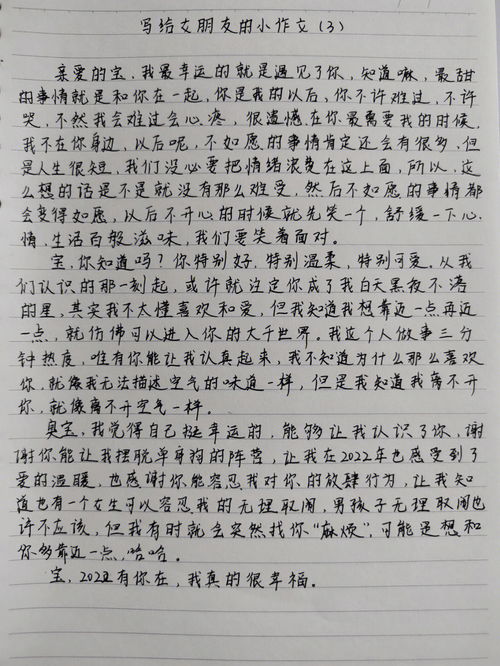 写给女朋友的小作文(3)
亲爱的宝,我最幸运的就是遇见了你,知道嘛,最甜
的事情就是和你在一起,你是我的以后,你不许难过,不许
哭,不然我会难过会心疼,很遗憾在你最需要我的时候,
我不在你身边,以后呢,不如愿的事情肯定还会有很多,但
是人生很短,我们没必要把情绪浪费在这上面,所以,这
么想的话是不是就没有那么难受,然后不如愿的事情都
会变得如愿,以后不开心的时候就先笑一个,舒缓一下心
情,生活百般滋味,我们要笑着面对。
宝,你知道吗?你特别好,特别温柔,特别可爱。从我
们认识的那一刻起,或许就注定你成了我白天黑夜不落
的星,其实我不太懂喜欢和爱,但我知道我想靠近一点再近
一点,就仿佛可以进入你的大千世界。我这个人做事三分
钟热度,唯有你能让我认真起来,我不知道为什么那么喜欢
你,就像我无法描述空气的味道一样,但是我知道我离不开
你,就像离不开空气一样。
臭宝,我觉得自己挺幸运的,能够让我认识了你,谢
谢你能让我摆脱单身狗的阵营,让我在2022年也感受到了
爱的温暖,也感谢你能容忍我对你的放肆行为,让我知
道也有一个女生可以容忍我的无理取闹,男孩子无理取闹也
许不应该,但我有时就会突然找你“麻烦”,可能是想和
你多靠近一点,哈哈。
宝,2022有你在,我真的很幸福。